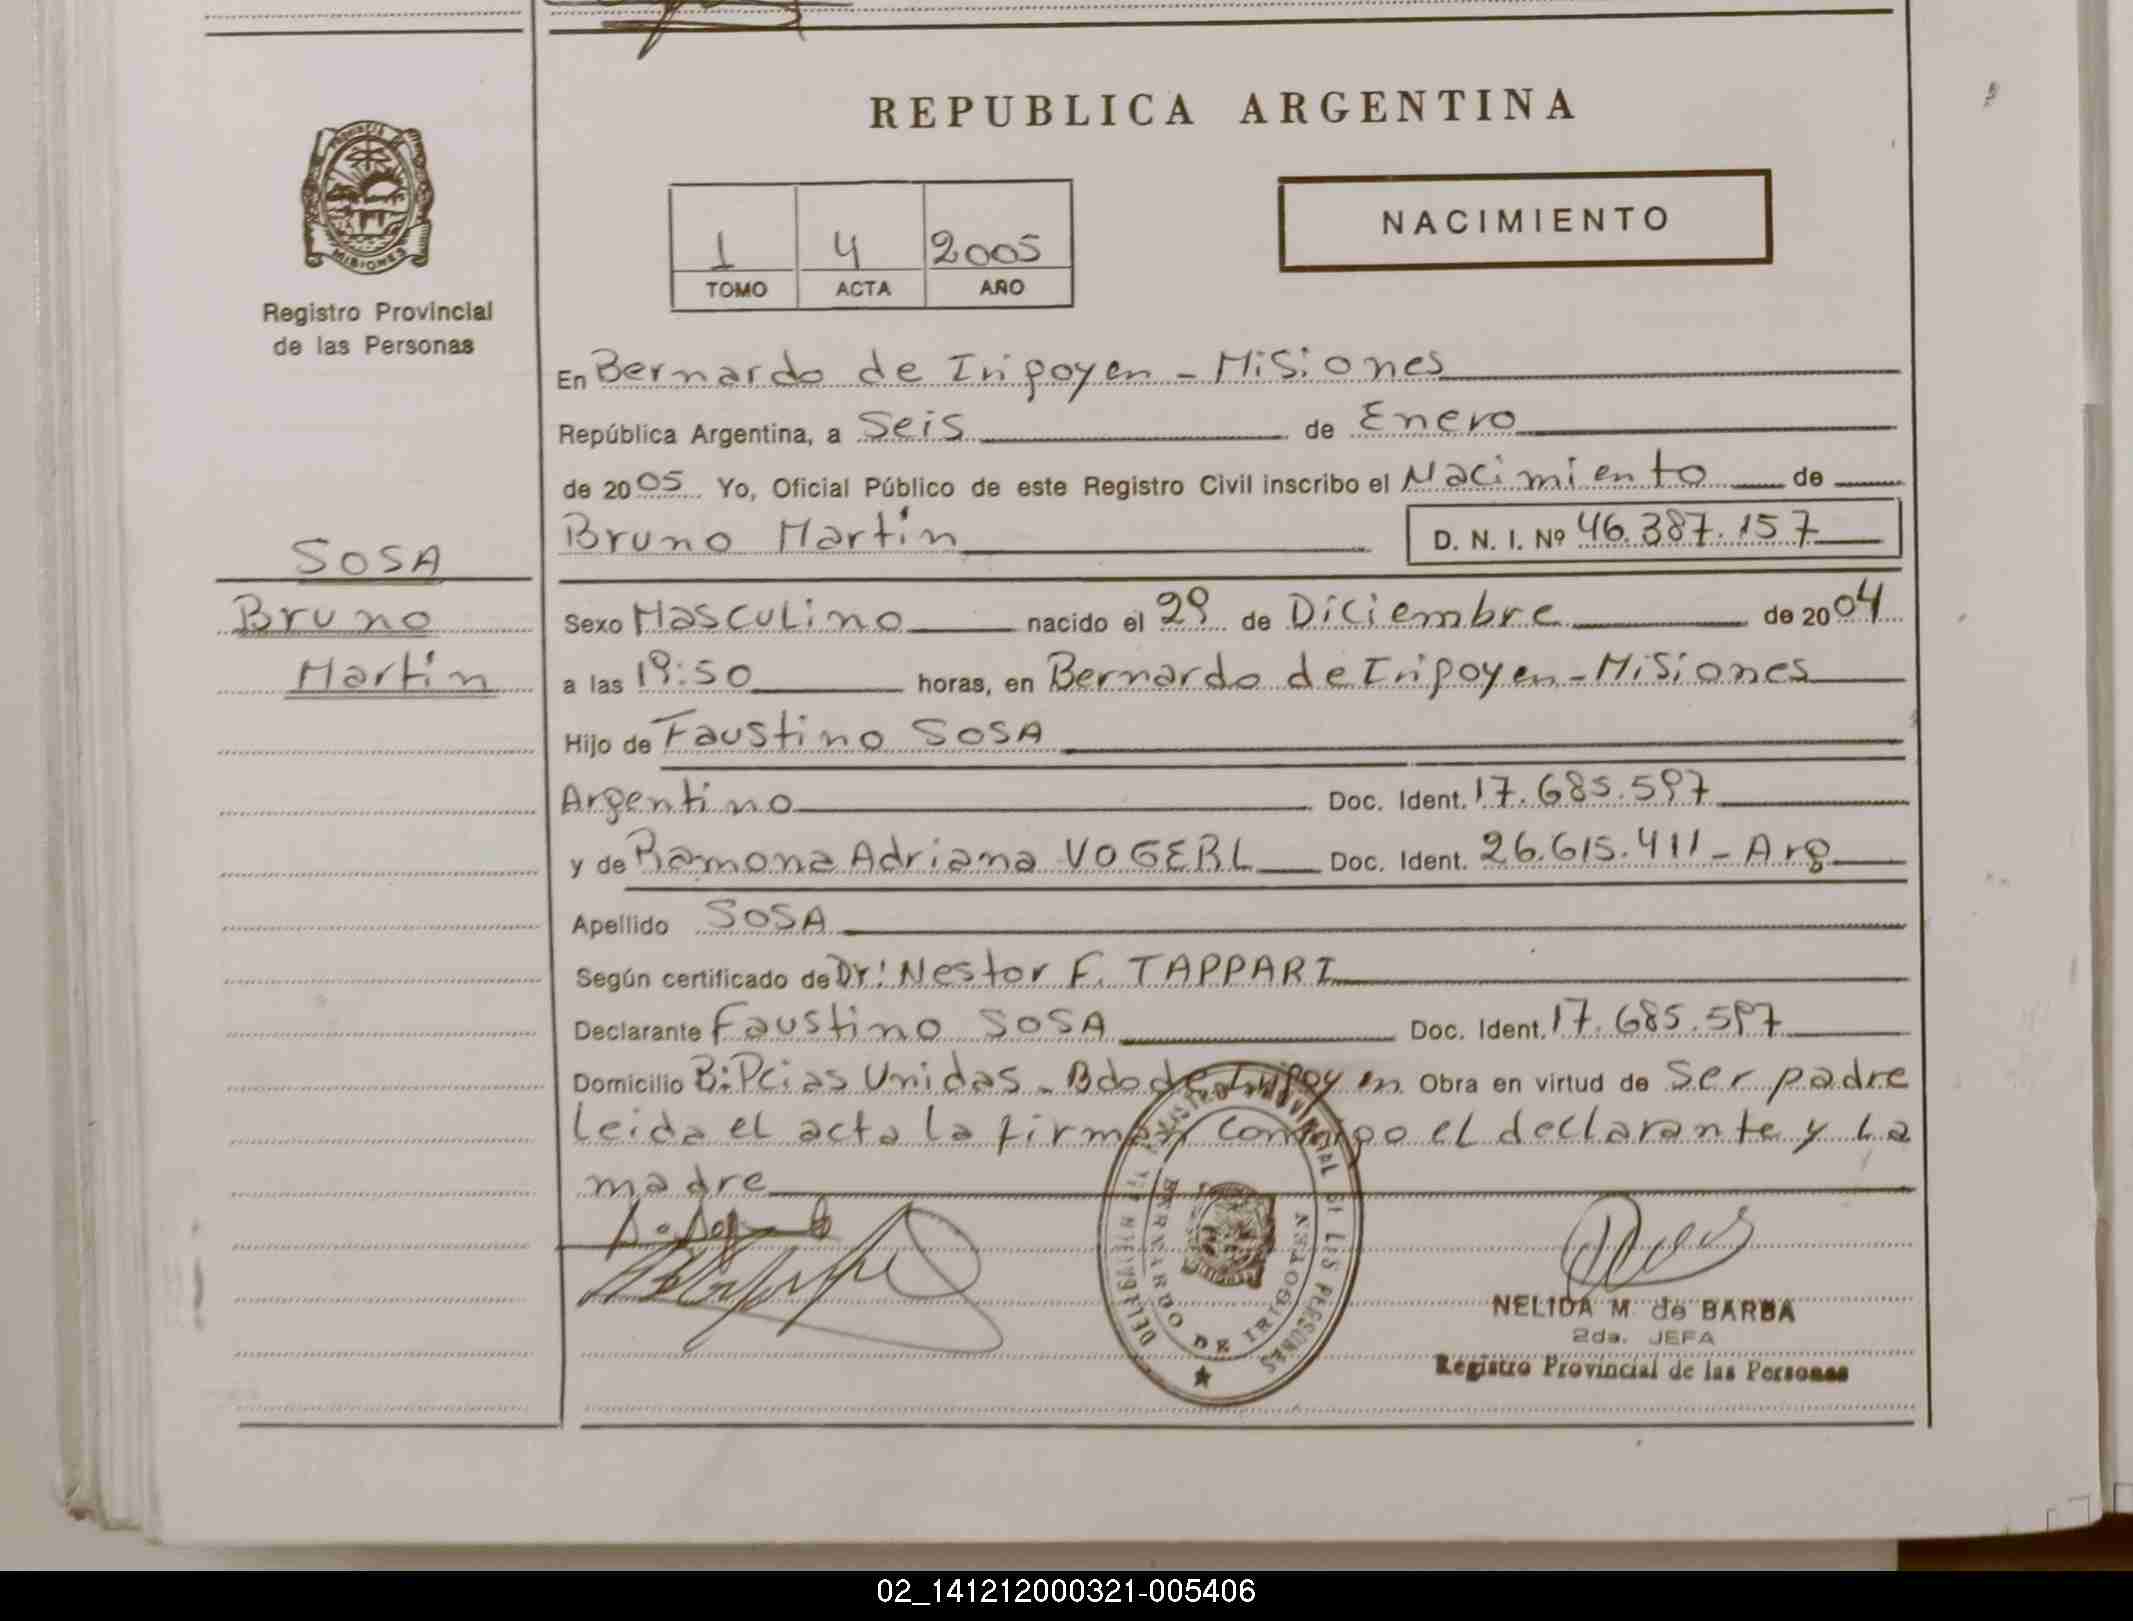 REPUBLICA ARGENTINA
PROVINCIA DE
MISIONES
Registro Provincial
de las Personas
NACIMIENTO
1 4 2005
TOMO ACTA AÑO
En Bernardo de Iripoyen - Misiones
República Argentina, a Seis de Enero
de 2005 Yo, Oficial Público de este Registro Civil inscribo el Nacimiento de
Bruno Martín D. N. I. Nº 46.387.157
SOSA
Bruno
Martín
Sexo Masculino nacido el 29 de Diciembre de 2004
a las 19:50 horas, en Bernardo de Iripoyen - Misiones
Hijo de Faustino SOSA
Argentino Doc. Ident. 17.685.597
y de Ramona Adriana VOGERL Doc. Ident. 26.615.411 - Arg
Apellido SOSA
Según certificado de Dr: Nestor F. TAPPARI
Declarante Faustino SOSA Doc. Ident. 17.685.597
Domicilio B: Pcias Unidas - Bdo de Iripoyen Obra en virtud de Ser padre
Leida el acta la firman conmigo el declarante y la
madre
REGISTRO PROVINCIAL DE LAS PERSONAS
BERNARDO DE IRIGOYEN
NELIDA M. de BARBA
2da. JEFA
Registro Provincial de las Personas
02_141212000321-005406